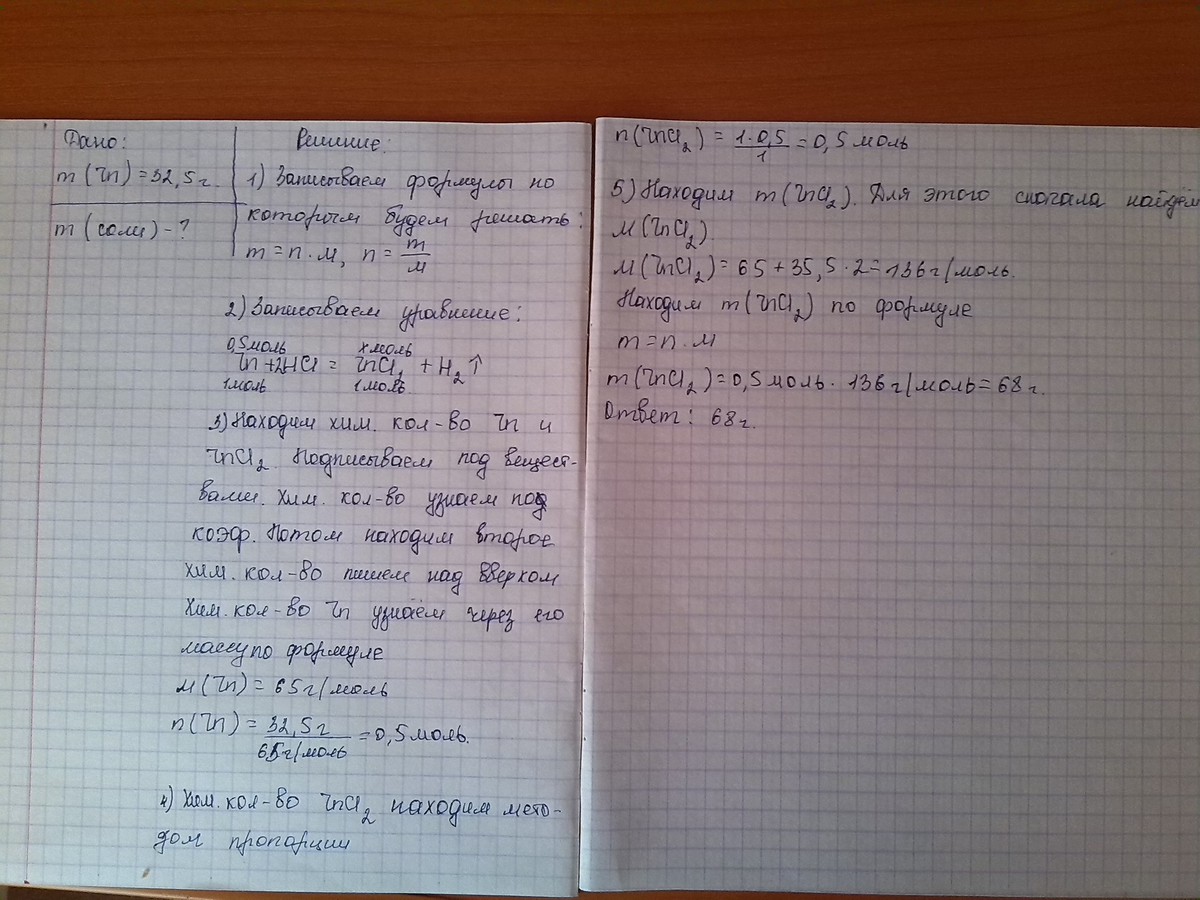 Дано:
m(Zn)=32,5г.
m(соли)-?
Решение:
1) Записываем формулы по
которым будем решать:
m=n·м, n=m/м
2) Записываем уравнение:
0,5моль хмоль
Zn+2HCl = ZnCl2 + H2↑
1моль 1моль
3) Находим хим. кол-во Zn и
ZnCl2. Подписываем под вещест-
вами. Хим. кол-во узнаем под
коэф. Потом находим второе
хим. кол-во пишем над вверхом
Хим. кол-во Zn узнаём через его
массу по формуле
м(Zn) = 65г/моль
n(Zn) = 32,5г/65г/моль =0,5моль.
4) Хим. кол-во ZnCl2 находим мето-
дом пропорции
n(ZnCl2) = 1·0,5/1 = 0,5 моль
5) Находим m(ZnCl2). Для этого сначала найдём
М(ZnCl2).
М(ZnCl2)= 65+35,5·2=136г/моль.
Находим m(ZnCl2) по формуле
m=n·м
m(ZnCl2)=0,5моль· 136г/моль=68г.
Ответ: 68г.